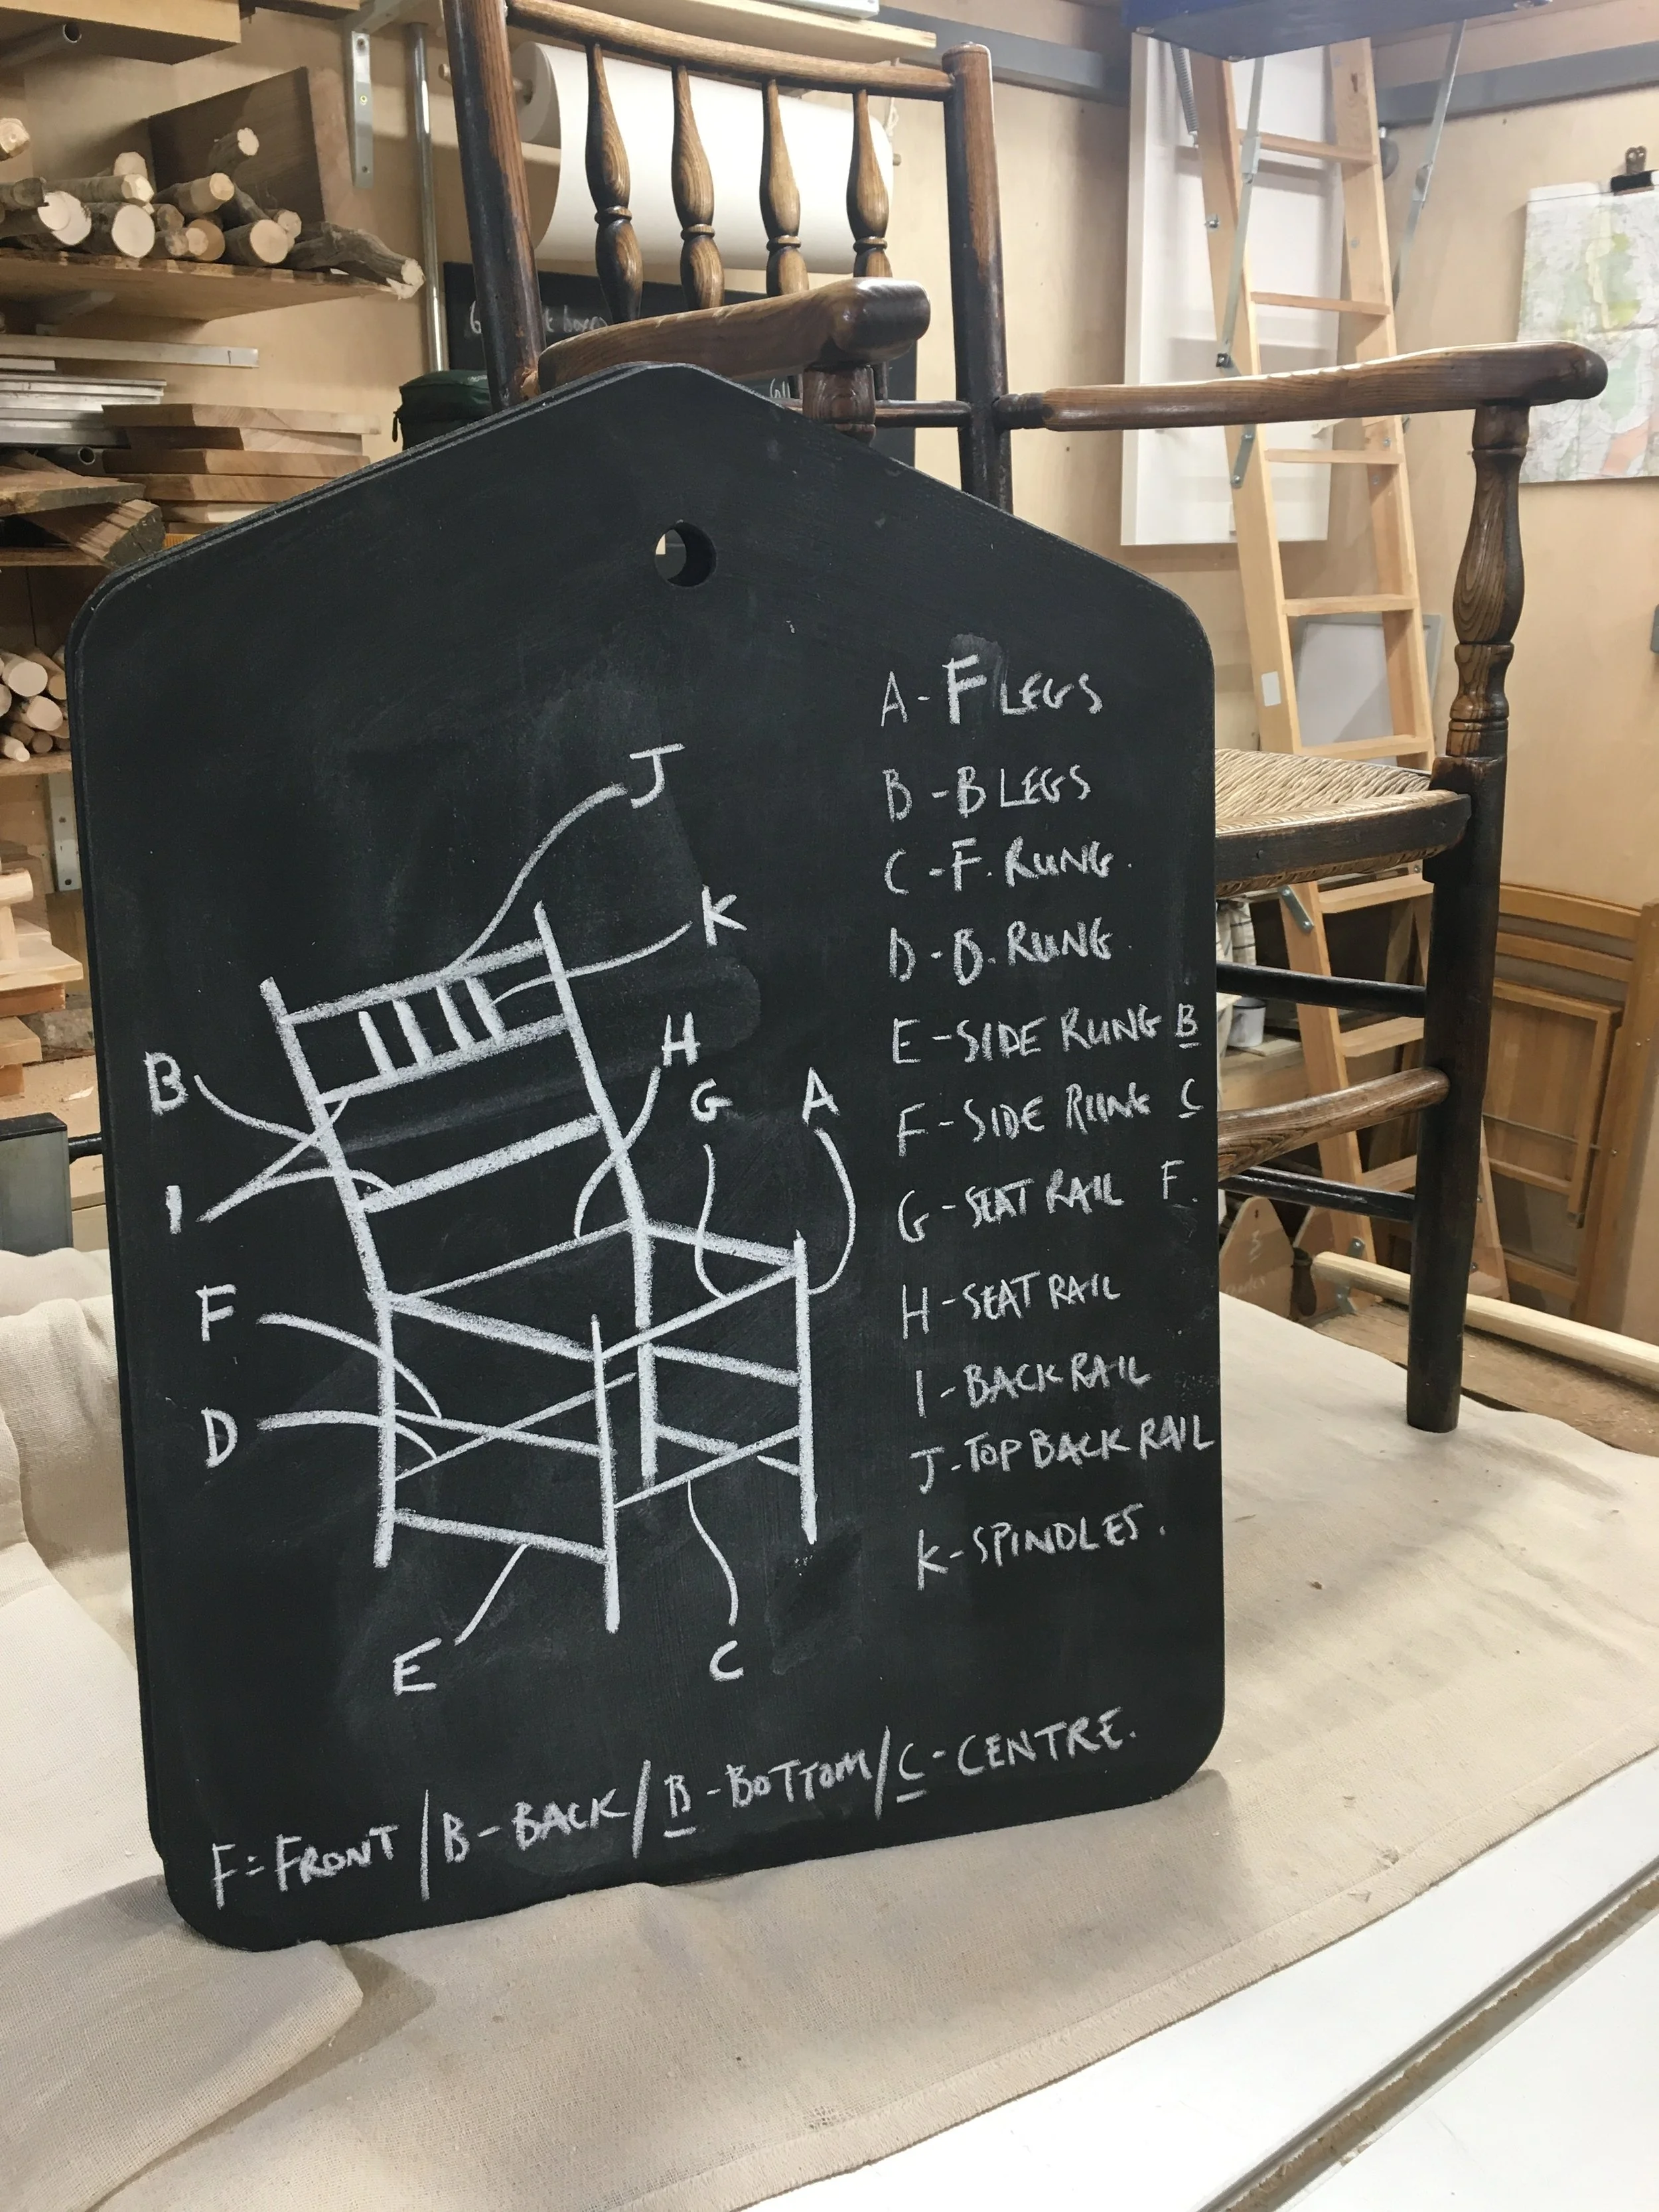 J
K
H
G
A
B
I
F
D
E
C
A - F LEGS
B - B LEGS
C - F. RUNG.
D - B. RUNG.
E - SIDE RUNG B
F - SIDE RUNG C
G - SEAT RAIL F.
H - SEAT RAIL
I - BACK RAIL
J - TOP BACK RAIL
K - SPINDLES.
F = FRONT / B - BACK / B - BOTTOM / C - CENTRE.